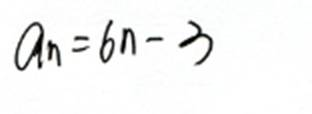 an = 6n - 3